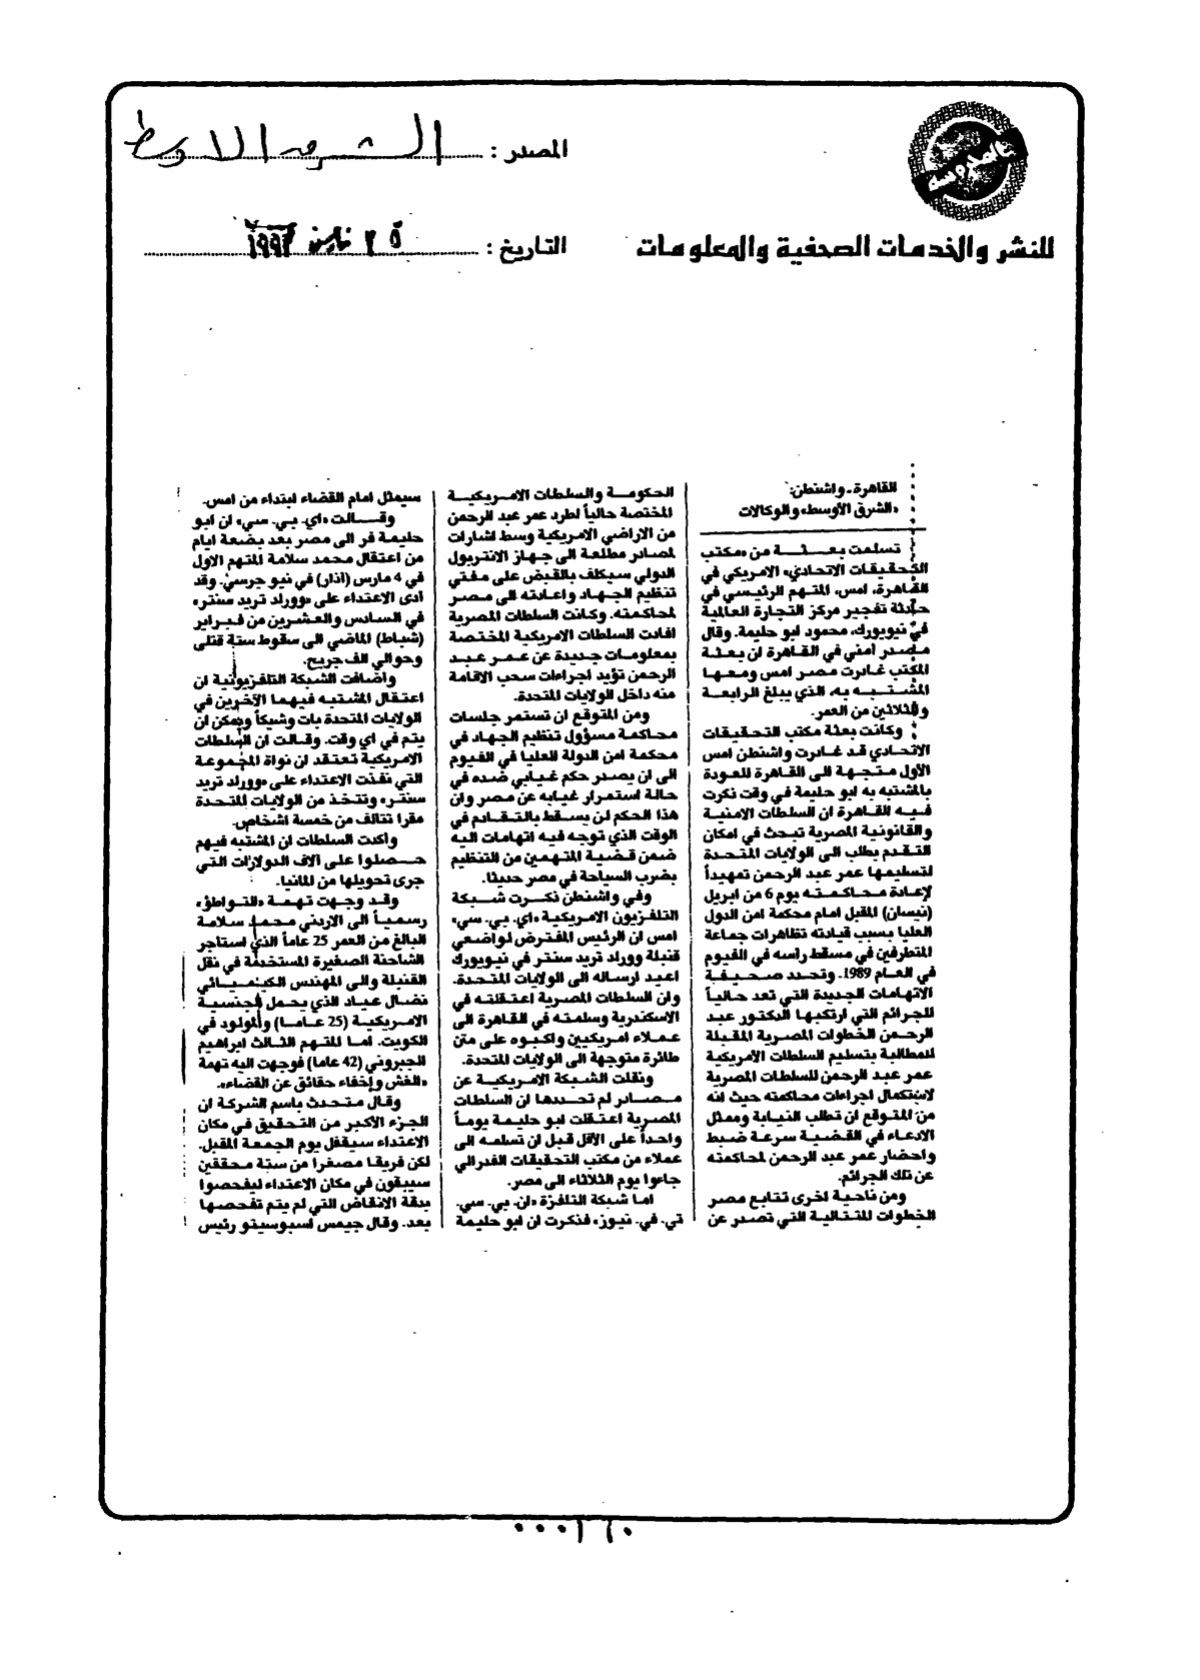 المصدر : الشرق الاوسط
للنشر والخدمات الصحفية والمعلومات
التاريخ : ٢٥ مارس ١٩٩٣
القاهرة ـ واشنطن:
«الشرق الأوسط» والوكالات
تسلمت بعثة من «مكتب
التحقيقات الاتحادي» الامريكي في
القاهرة، امس، المتهم الرئيسي في
حادثة تفجير مركز التجارة العالمية
في نيويورك، محمود ابو حليمة. وقال
مصدر امني في القاهرة ان بعثة
المكتب غادرت مصر امس ومعها
المشتبه به، الذي يبلغ الرابعة
والثلاثين من العمر.
وكانت بعثة مكتب التحقيقات
الاتحادي قد غادرت واشنطن امس
الأول متجهة الى القاهرة للعودة
بالمشتبه به ابو حليمة في وقت ذكرت
فيه القاهرة ان السلطات الامنية
والقانونية المصرية تبحث في امكان
التقدم بطلب الى الولايات المتحدة
لتسليمها عمر عبد الرحمن تمهيداً
لإعادة محاكمته يوم 6 من ابريل
(نيسان) المقبل امام محكمة امن الدول
العليا بسبب قيادته تظاهرات جماعة
المتطرفين في مسقط راسه في الفيوم
في العام 1989. وتحدد صحيفة
الاتهامات الجديدة التي تعد حالياً
للجرائم التي ارتكبها الدكتور عبد
الرحمن الخطوات المصرية المقبلة
للمطالبة بتسليم السلطات الأمريكية
عمر عبد الرحمن للسلطات المصرية
لاستكمال اجراءات محاكمته حيث انه
من المتوقع ان تطلب النيابة وممثل
الادعاء في القضية سرعة ضبط
واحضار عمر عبد الرحمن لمحاكمته
عن تلك الجرائم.
ومن ناحية اخرى تتابع مصر
الخطوات المتتالية التي تصدر عن
الحكومة والسلطات الامريكية
المختصة حالياً لطرد عمر عبد الرحمن
من الاراضي الامريكية وسط اشارات
لمصادر مطلعة الى جهاز الانتربول
الدولي سيكلف بالقبض على مفتي
تنظيم الجهاد واعادته الى مصر
لمحاكمته. وكانت السلطات المصرية
افادت السلطات الامريكية المختصة
بمعلومات جديدة عن عمر عبد
الرحمن تؤيد اجراءات سحب الاقامة
منه داخل الولايات المتحدة.
ومن المتوقع ان تستمر جلسات
محاكمة مسؤول تنظيم الجهاد في
محكمة امن الدولة العليا في الفيوم
الى ان يصدر حكم غيابي ضده في
حالة استمرار غيابه عن مصر وان
هذا الحكم لن يسقط بالتقادم في
الوقت الذي توجه فيه اتهامات اليه
ضمن قضية المتهمين من التنظيم
بضرب السياحة في مصر حديثا.
وفي واشنطن ذكرت شبكة
التلفزيون الامريكية «اي. بي. سي»
امس ان الرئيس المفترض لواضعي
قنبلة وورلد تريد سنتر في نيويورك
اعيد ارساله الى الولايات المتحدة.
وان السلطات المصرية اعتقلته في
الاسكندرية وسلمته في القاهرة الى
عملاء امريكيين واكبوه على متن
طائرة متوجهة الى الولايات المتحدة.
ونقلت الشبكة الامريكية عن
مصادر لم تحددها ان السلطات
المصرية اعتقلت ابو حليمة يوماً
واحداً على الأقل قبل ان تسلمه الى
عملاء من مكتب التحقيقات الفدرالي
جاءوا يوم الثلاثاء الى مصر.
اما شبكة التلفزة «ان. بي. سي.
تي. في. نيوز» فذكرت ان ابو حليمة
سيمثل امام القضاء ابتداء من امس.
وقالت «اي. بي. سي» ان ابو
حليمة فر الى مصر بعد بضعة ايام
من اعتقال محمد سلامة المتهم الاول
في 4 مارس (اذار) في نيو جرسي. وقد
ادى الاعتداء على «وورلد تريد سنتر»
في السادس والعشرين من فبراير
(شباط) الماضي الى سقوط ستة قتلى
وحوالي الف جريح.
واضافت الشبكة التلفزيونية ان
اعتقال المشتبه فيهما الآخرين في
الولايات المتحدة بات وشيكاً ويمكن ان
يتم في اي وقت. وقالت ان السلطات
الامريكية تعتقد ان نواة المجموعة
التي نفذت الاعتداء على «وورلد تريد
سنتر» وتتخذ من الولايات المتحدة
مقرا تتالف من خمسة اشخاص.
واكدت السلطات ان المشتبه فيهم
حصلوا على آلاف الدولارات التي
جرى تحويلها من المانيا.
وقد وجهت تهمة «التواطؤ»
رسمياً الى الاردني محمد سلامة
البالغ من العمر 25 عاماً الذي استاجر
الشاحنة الصغيرة المستخدمة في نقل
القنبلة والى المهندس الكيميائي
نضال عياد الذي يحمل الجنسية
الامريكية (25 عاما) والمولود في
الكويت. اما المتهم الثالث ابراهيم
الجبروني (42 عاما) فوجهت اليه تهمة
«الغش وإخفاء حقائق عن القضاء».
وقال متحدث باسم الشركة ان
الجزء الاكبر من التحقيق في مكان
الاعتداء سيقفل يوم الجمعة المقبل.
لكن فريقا مصغرا من ستة محققين
سيبقون في مكان الاعتداء ليفحصوا
بدقة الانقاض التي لم يتم تفحصها
بعد. وقال جيمس اسبوسيتو رئيس